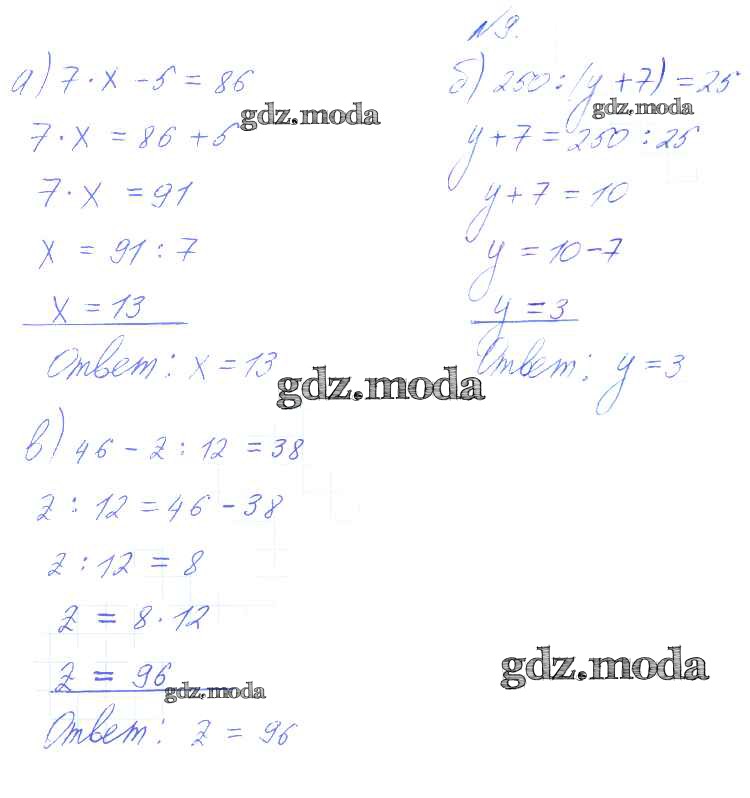 №9.
а) 7 · x - 5 = 86
gdz.moda
7 · x = 86 + 5
7 · x = 91
x = 91 : 7
x = 13
Ответ: x = 13
б) 250 : (y + 7) = 25
gdz.moda
y + 7 = 250 : 25
y + 7 = 10
y = 10 - 7
y = 3
Ответ: y = 3
gdz.moda
в) 46 - z : 12 = 38
z : 12 = 46 - 38
z : 12 = 8
z = 8 · 12
z = 96
gdz.moda
Ответ: z = 96
gdz.moda